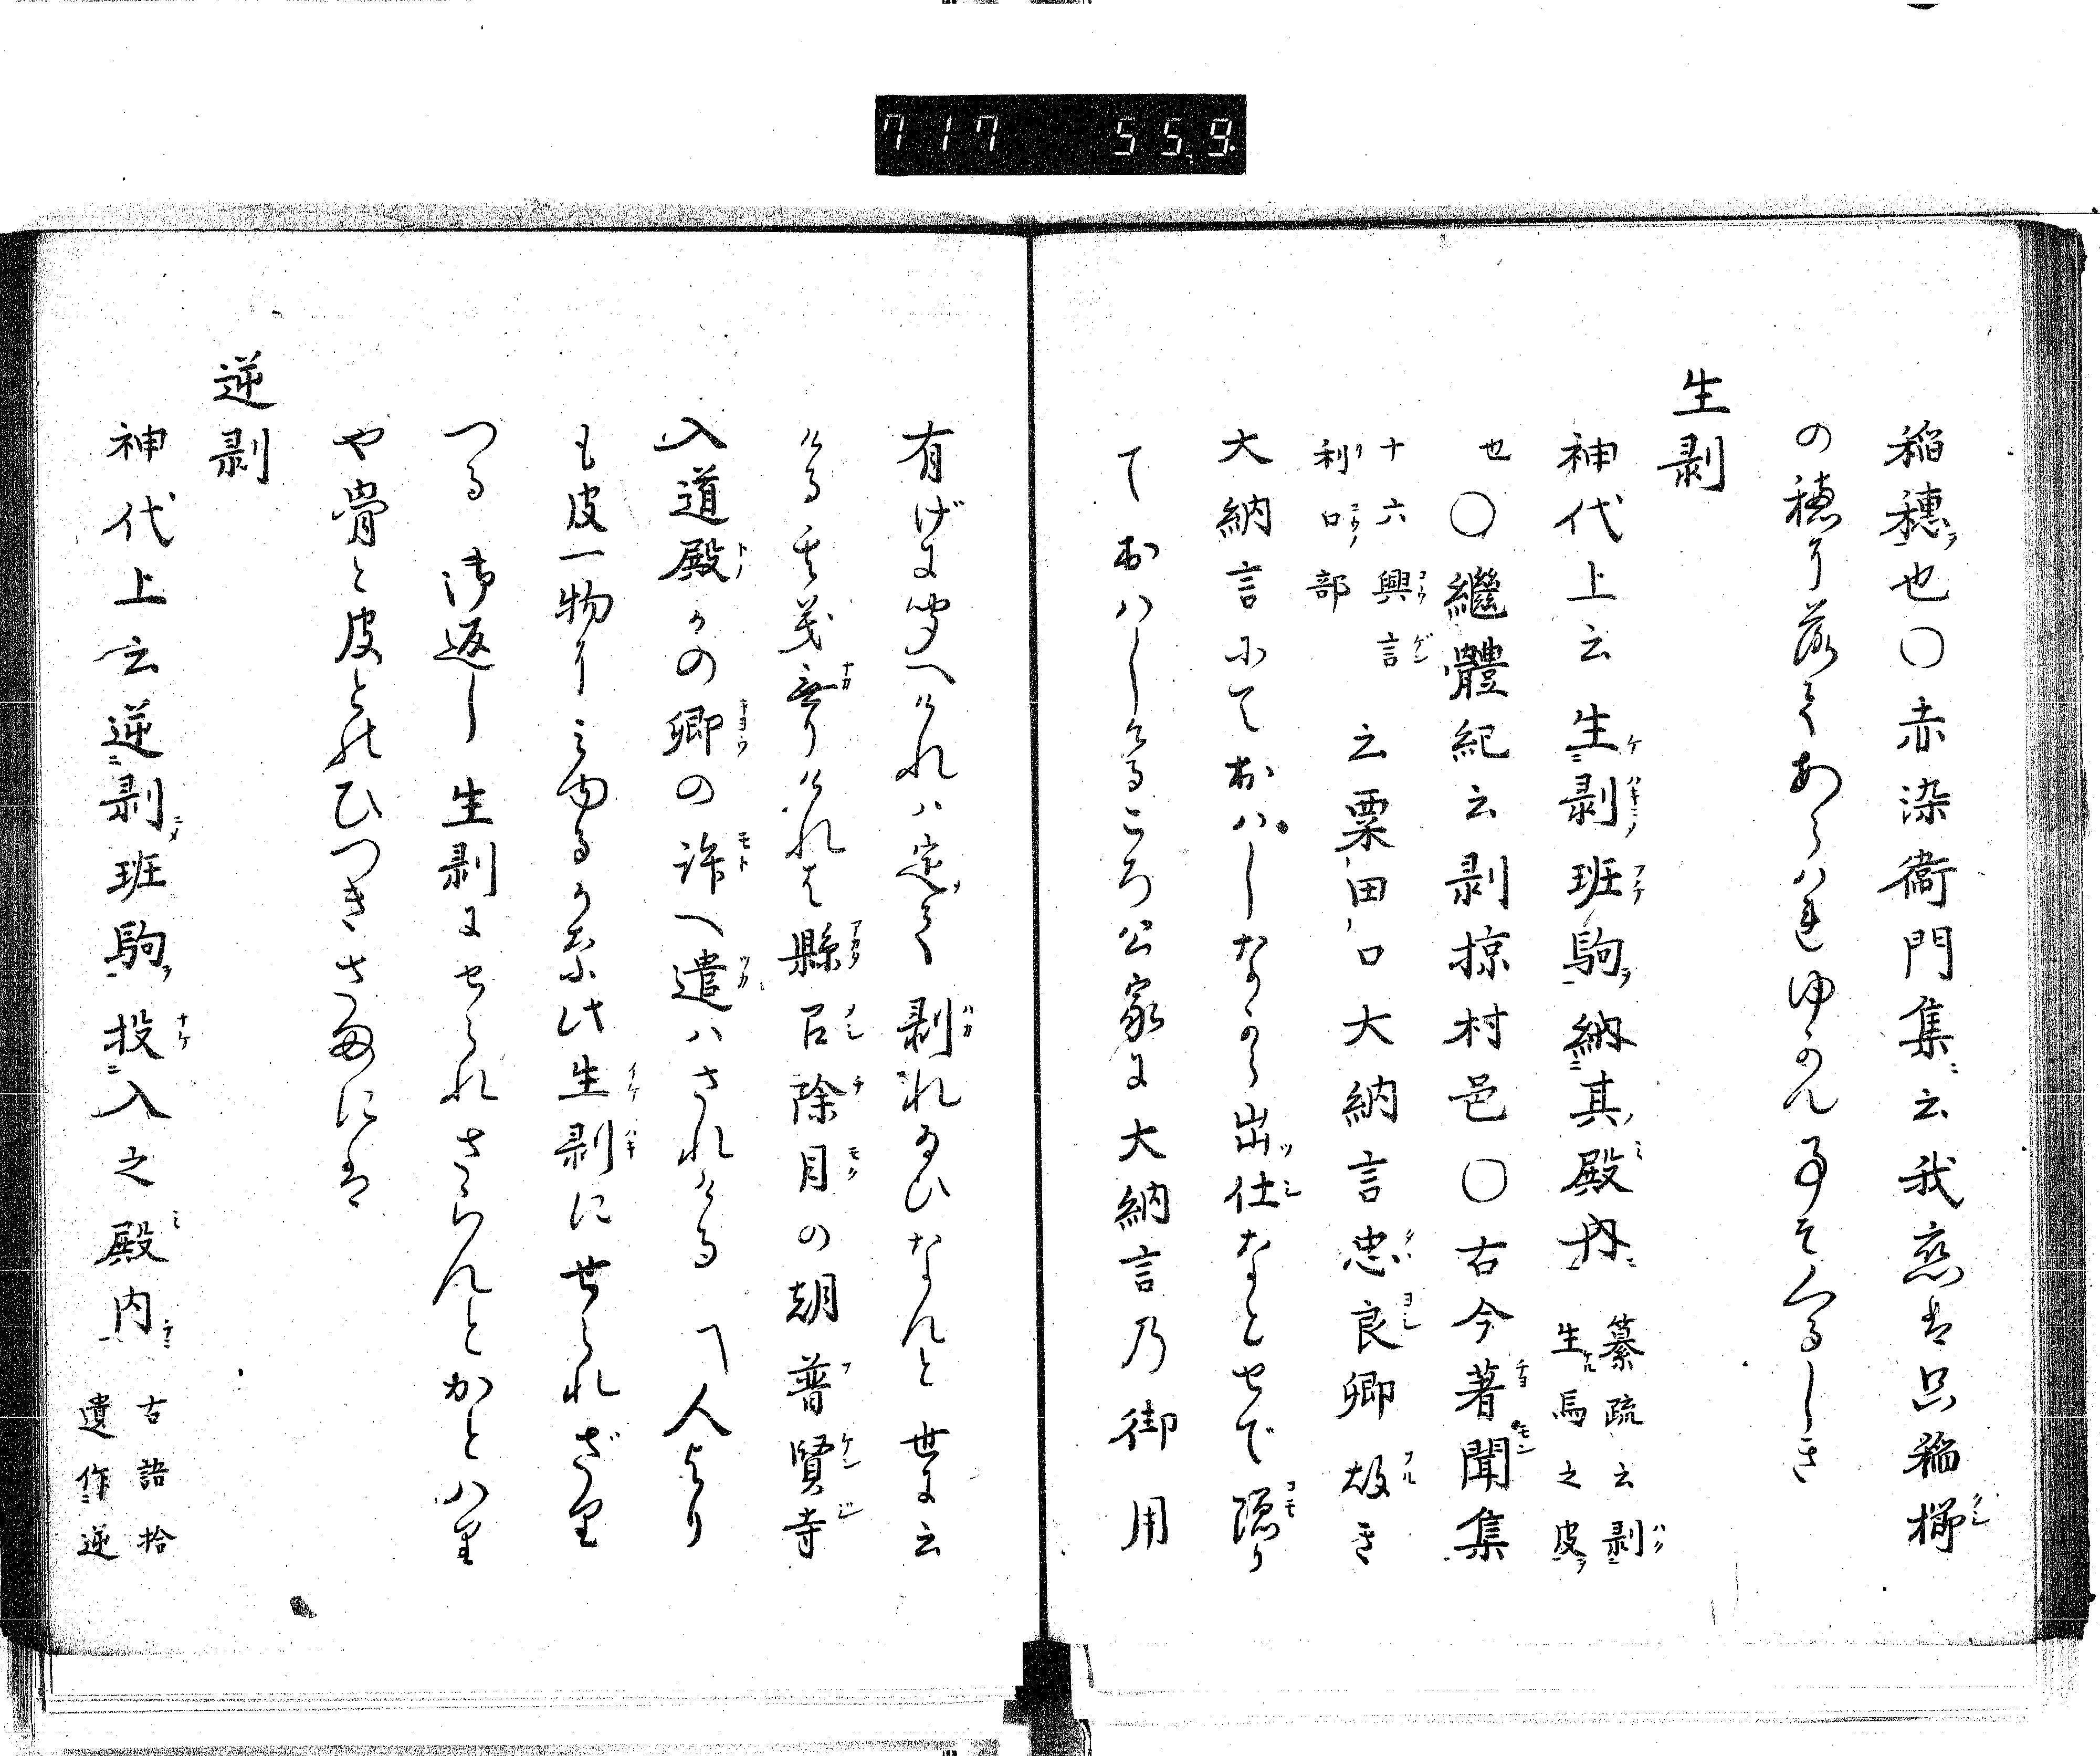 717 559
稲穗ヲ也〇赤染衞門集ニ云我恋は只稲櫛
の穂に落てあらはれゆかん事そくるしき
生剥
神代上云生剥班駒ヲ納其殿内 纂疏云剥生馬之皮ヲ
也〇繼體紀云剥掠村邑〇古今著聞集
十六興言利口部 云粟田口大納言忠良卿故き
大納言にておハしなから出仕なともせで隠り
ておハしけるころ公家に大納言乃御用
有げに聞へけれハ定て剥れ給ひなんと世に云
ける其義無りけれは縣召除目の朝普賢寺
入道殿かの卿の許へ遣ハされける 人より
も皮一物に
つる 御返し 生剥にせられさらんとかとハ里
や骨と皮とのひつきさまには
逆剥
神代上云逆剥班駒ヲ投入之殿内 古語拾遺作逆